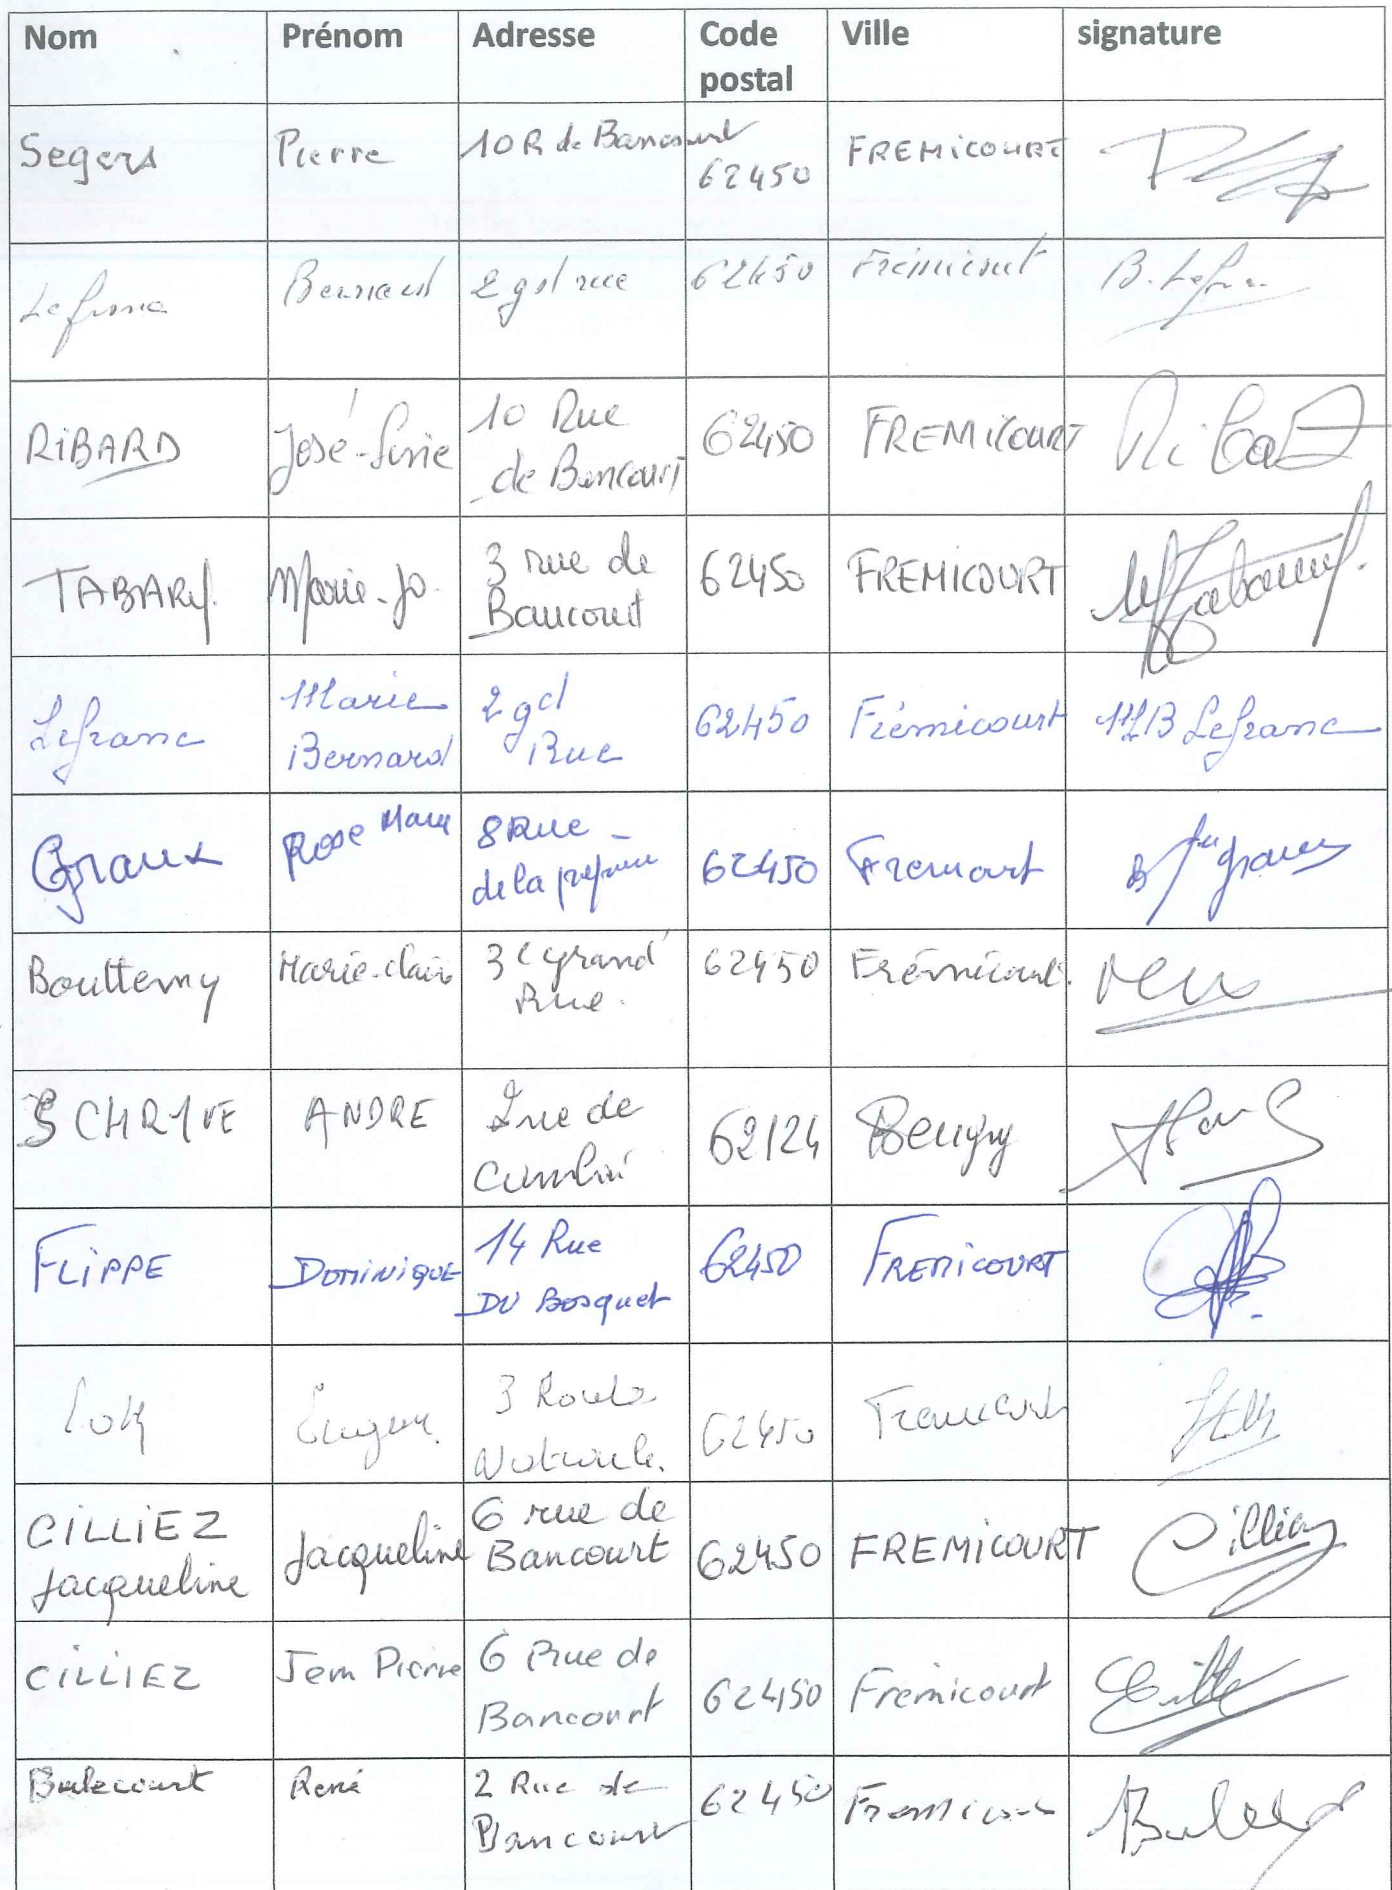 Nom Prénom Adresse Code postal Ville signature
Segers Pierre 10 R de Bancourt 62450 FREMICOURT
Lefranc Bernard 2 gd rue 62450 Frémicourt B. Lefra
RIBARD José 10 Rue de Bancourt 62450 FREMICOURT Ribard
TABARY Marie-Jo. 3 rue de Bancourt 62450 FREMICOURT
Lefranc Marie Bernard 2 gd Rue 62450 Frémicourt M B Lefranc
Graux Rose Marie 8 Rue de la 62450 Fremicourt
Bouttemy Marie-Claire grand Rue. 62450 Frémicourt.
SCHRYVE ANDRE rue de 62124 Beugny
FLIPPE DOMINIQUE 14 Rue DU Bosquet 62450 FREMICOURT
3 Route Nationale. 62450 Fremicourt
CILLIEZ Jacqueline Jacqueline 6 rue de Bancourt 62450 FREMICOURT Cilliez
CILLIEZ Jean Pierre 6 Rue de Bancourt 62450 Fremicourt
Bulecourt René 2 Rue de Bancourt 62450 Fremicourt